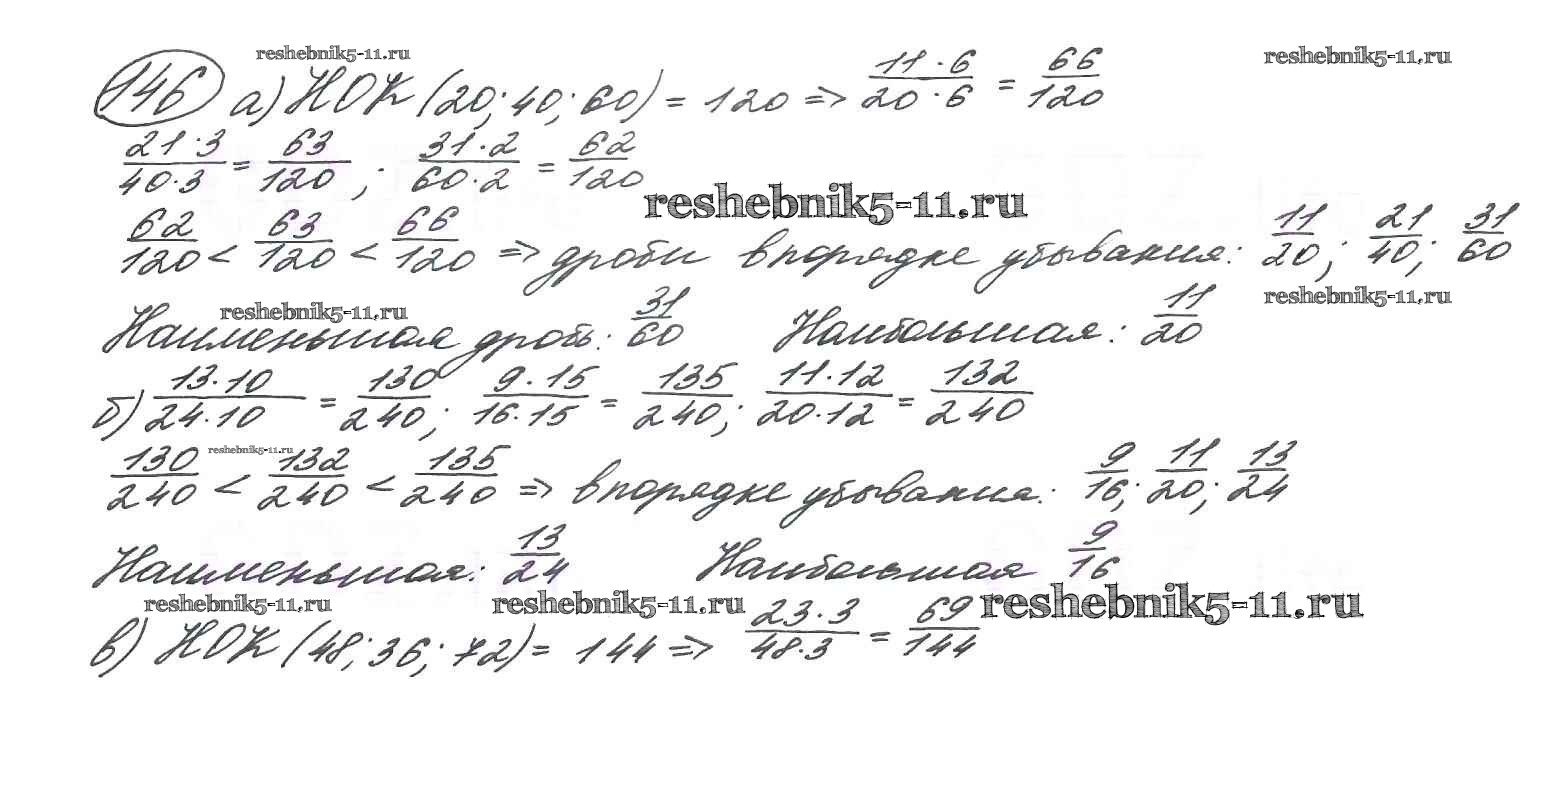 reshebnik5-11.ru
reshebnik5-11.ru
146 а) НОК (20; 40; 60) = 120 => 11·6/20·6 = 66/120
21·3/40·3 = 63/120; 31·2/60·2 = 62/120
reshebnik5-11.ru
62/120 < 63/120 < 66/120 => дроби в порядке убывания: 11/20; 21/40; 31/60
reshebnik5-11.ru
reshebnik5-11.ru
Наименьшая дробь: 31/60 Наибольшая: 11/20
б) 13·10/24·10 = 130/240; 9·15/16·15 = 135/240; 11·12/20·12 = 132/240
reshebnik5-11.ru
130/240 < 132/240 < 135/240 => в порядке убывания: 9/16; 11/20; 13/24
Наименьшая: 13/24 Наибольшая 9/16
reshebnik5-11.ru
reshebnik5-11.ru
reshebnik5-11.ru
в) НОК (48; 36; 72) = 144 => 23·3/48·3 = 69/144